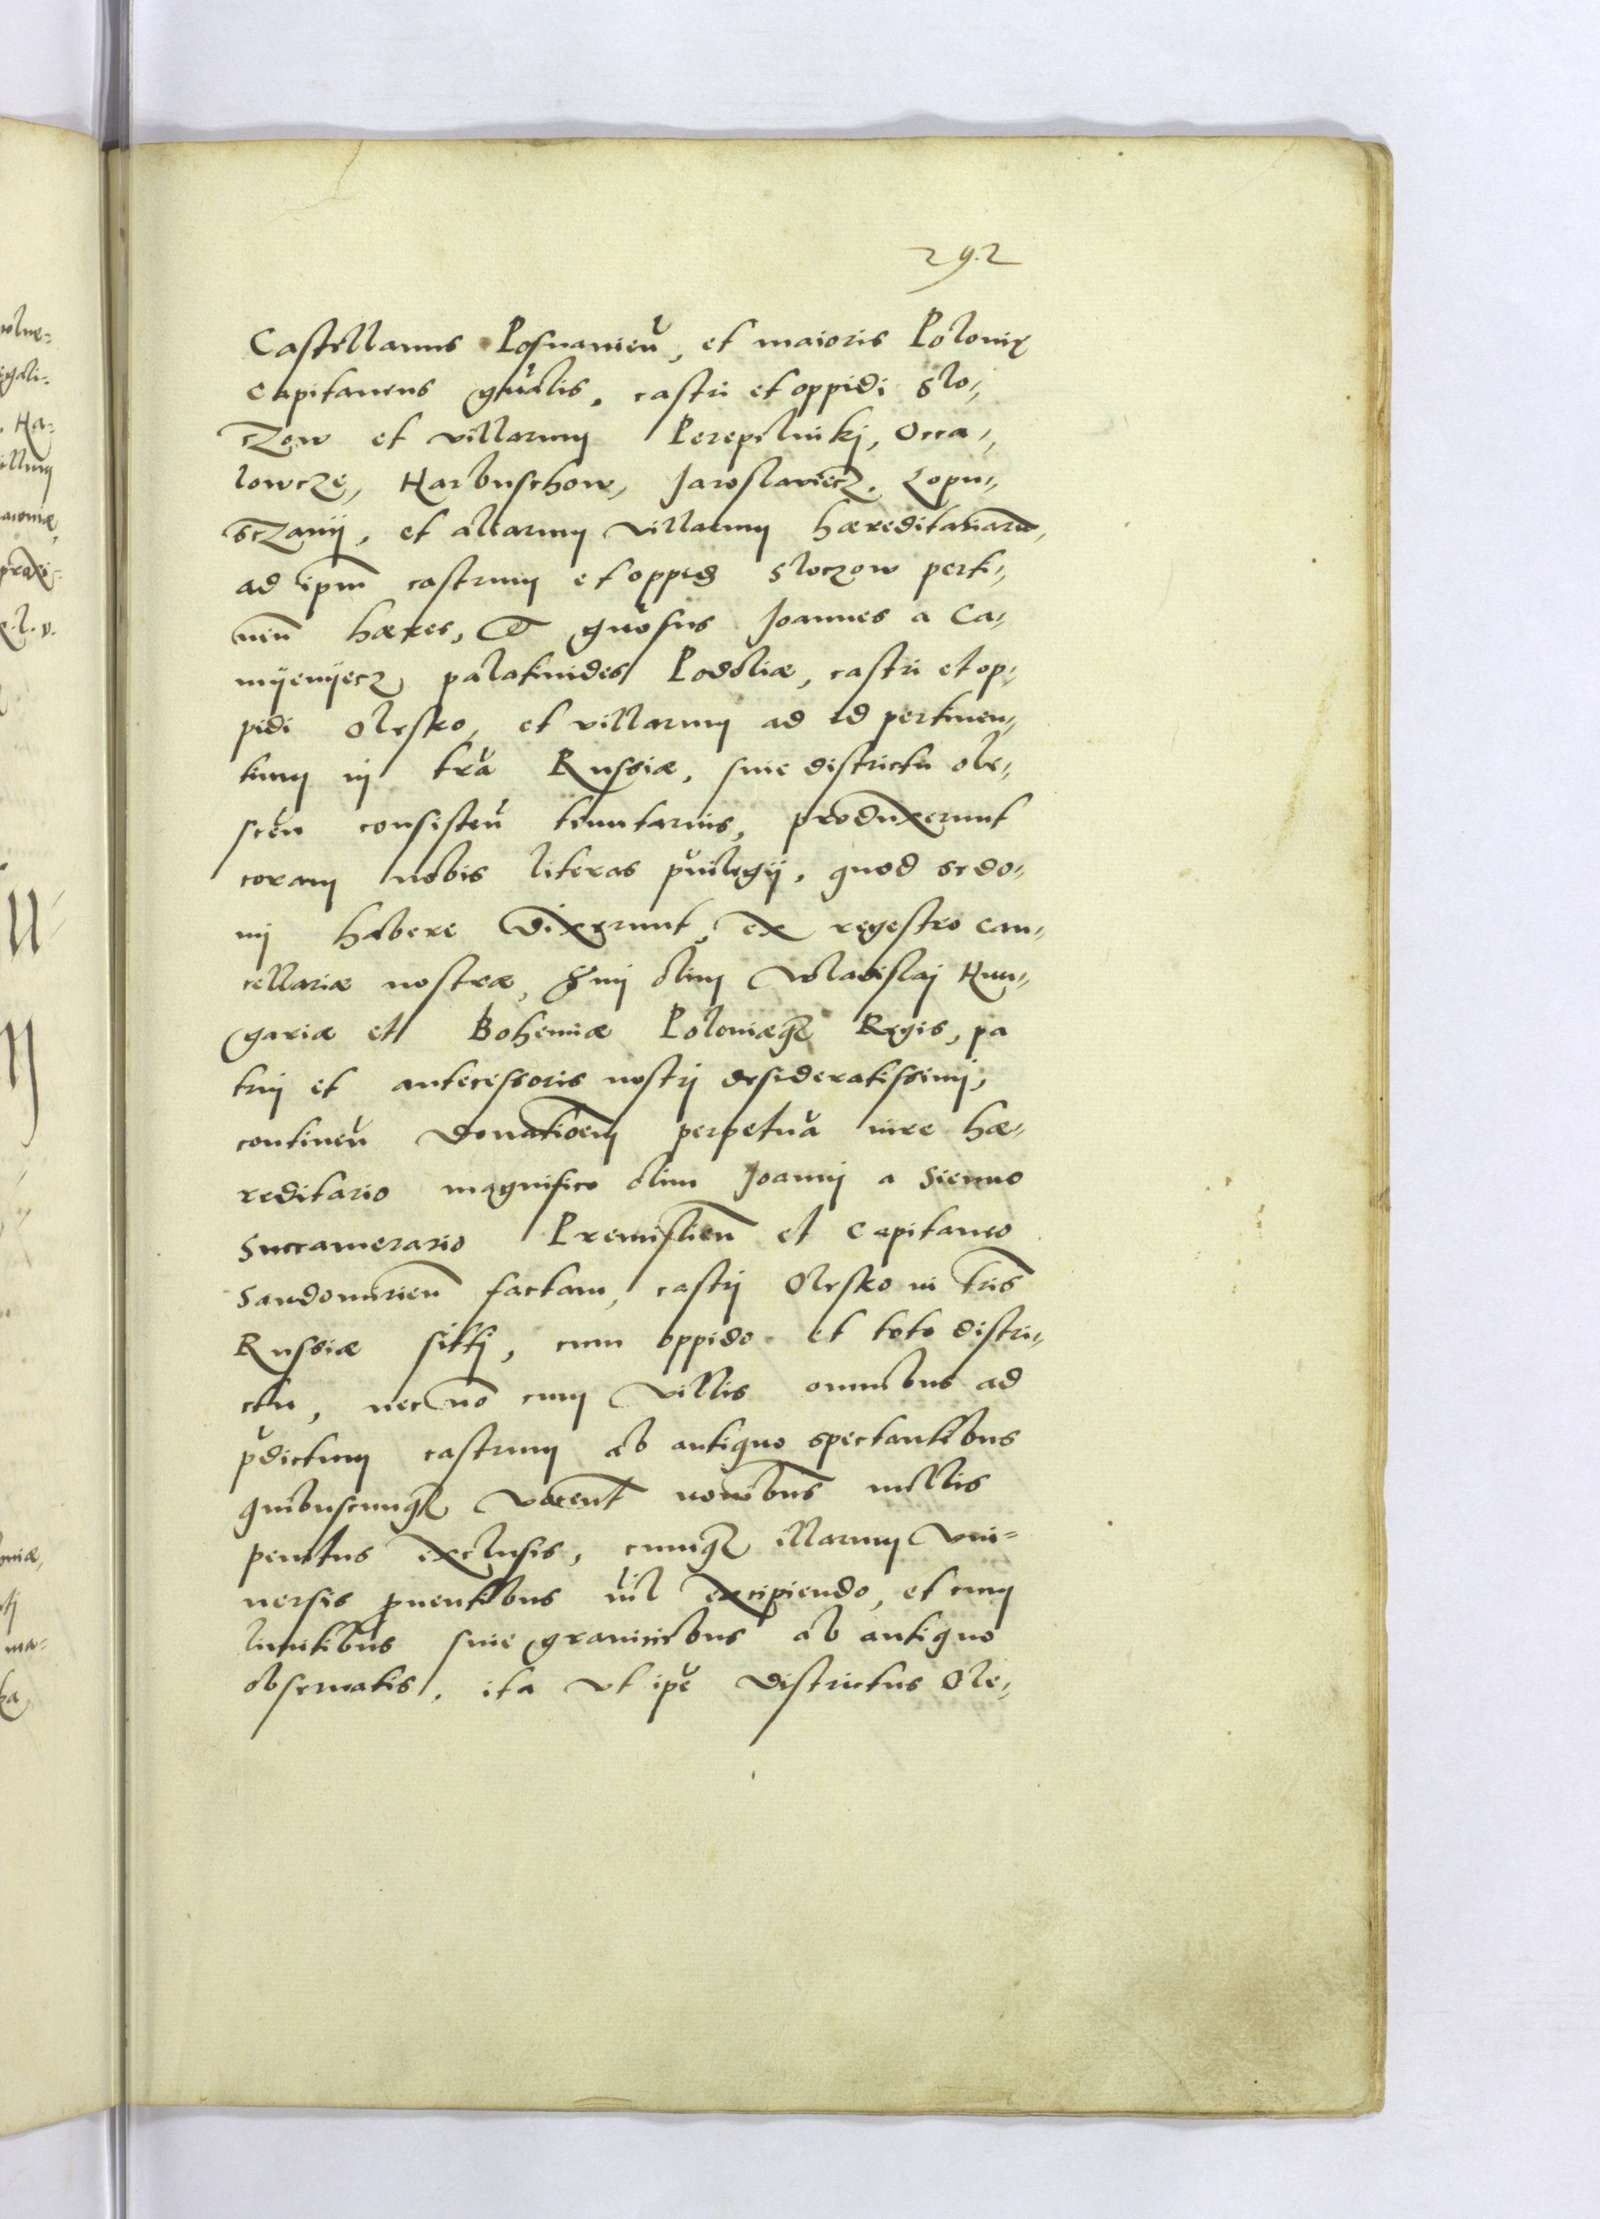 292
Castellanus Posnanien̄, et maioris Poloniæ
Capitaneus gn̄alis, castri et oppidi Slo-
czow et villarum Perepelnikj, Occa-
lowcze, Harbuschow, Jaroslaviecz, Lopu-
sczanij, et aliarum villarum hæreditariarū,
ad ipm̄ castrum et oppid Sloczow perti-
nen̄ hæres, Et gn̄osus Joannes a Ca-
myenyecz palatinides Podoliæ, castri et op-
pidi Olesko, et villarum ad id pertinen-
tium in tr̄a Russiæ, siue districtu Ole-
scen̄ consisten̄ tenutarius, produxerunt
coram nobis literas pūilegij, quod se do-
mi habere dixerunt, ex regestro Can-
cellariæ nostræ, Sermi olim Wladislaj Hun-
gariæ et Bohemiæ Poloniæq3 Regis, pa
trui et antecessoris nostrj desideratissimi,
continen̄ donatio͞em perpetuā iure hæ-
reditario magnifico olim Joanni a Sienno
Succamerario Premislien̄ et Capitaneo
Sandomirien̄ factam, castrj Olesko in tr̄is
Russiæ sittj, cum oppido et toto distri-
ctu, necno͞ cum villis omnibus ad
p̄dictum castrum ab antiquo spectantibus
quibuscunq3 vocent̄ nom̄ibus nullis
penitus exclusis, cumq3 illarum vni-
uersis prouentibus nīl excipiendo, et cum
limitibus siue graniciebus ab antiquo
obseruatis, ita vt ipē districtus Ole-